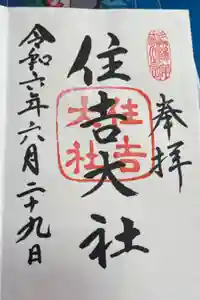 奉拝
住吉大社
住吉
大社
令和六年六月二十九日